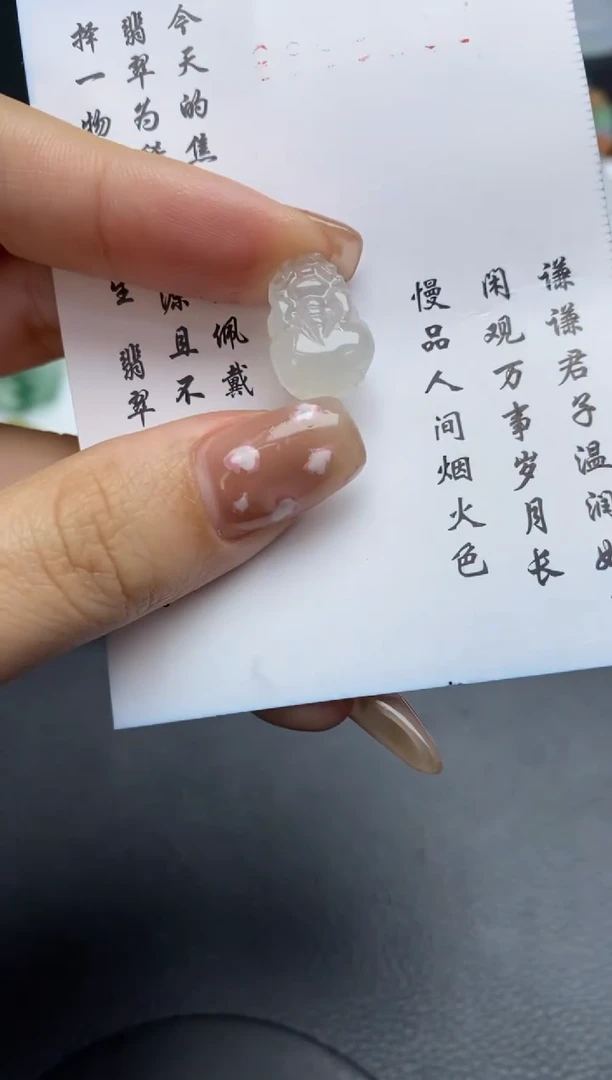 谦谦君子温润如
闲观万事岁月长
慢品人间烟火色
今天的焦 佩戴
翡翠为 深且不
择一物 生 翡翠